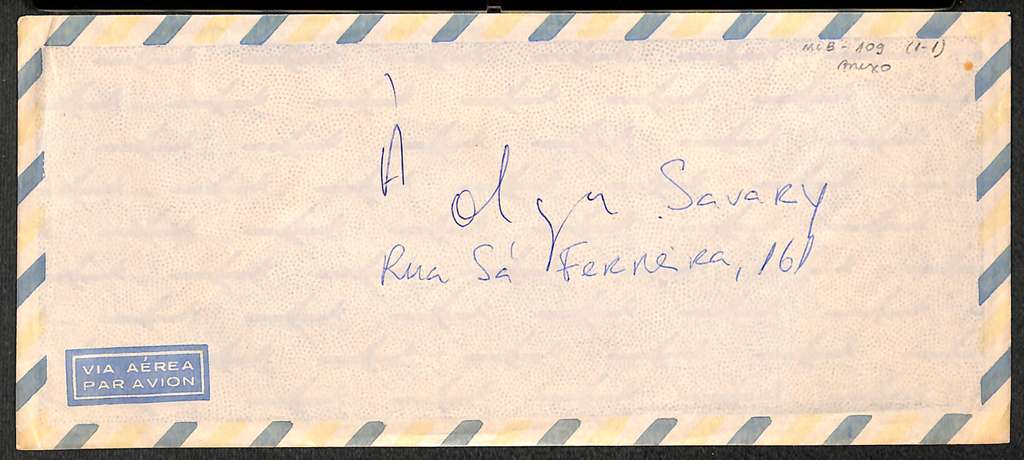 MLB - 109 (1-1)
Anexo
À
Olga Savary
Rua Sá Ferreira, 161
VIA AÉREA
PAR AVION